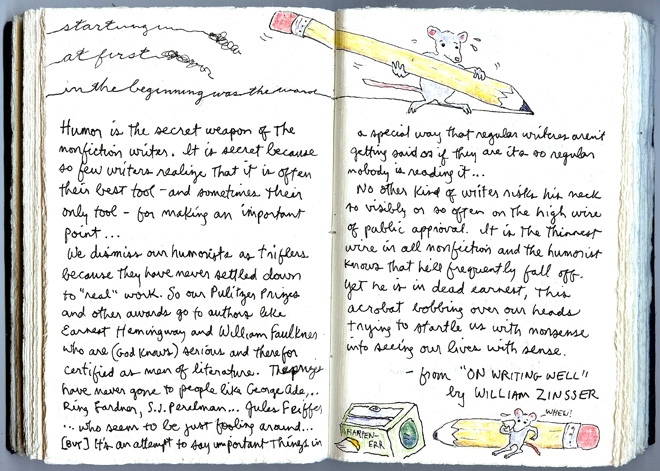 starting in
at first
in the beginning was the
Humor is the secret weapon of the
nonfiction writer. It is secret because
so few writers realize that it is often
their best tool - and sometimes their
only tool - for making an important
point...
We dismiss our humorists as triflers
because they have never settled down
to "real" work. So our Pulitzer Prizes
and other awards go to authors like
Earnest Hemingway and William Faulkner
who are (God knows) serious and therefor
certified as men of literature. The prizes
have never gone to people like George Ade,..
Ring Lardner, S.J. Perelman... Jules Feiffer
... who seem to be just fooling around...
[BUT] It's an attempt to say important things in
a special way that regular writers aren't
getting said or if they are it's so regular
nobody is reading it...
No other kind of writer risks his neck
so visibly or so often on the high wire
of public approval. It is the thinnest
wire in all nonfiction and the humorist
knows that he'll frequently fall off.
yet he is in dead earnest, This
acrobat bobbing over our heads
trying to startle us with nonsense
into seeing our lives with sense.
- from "ON WRITING WELL"
by WILLIAM ZINSSER
WHEW!